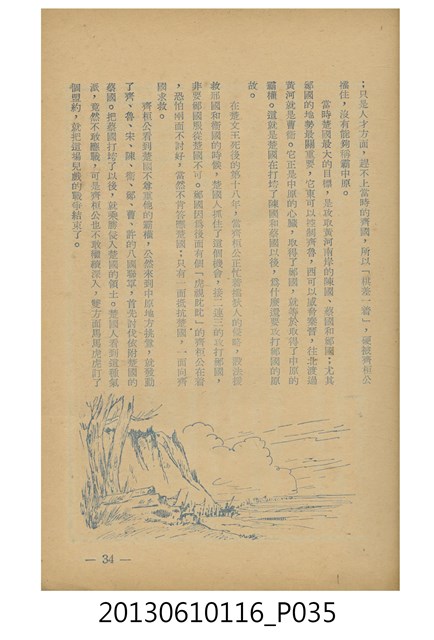 ：只是人才方面，趕不上當時的齊國，所以「棋差一着」，硬被齊桓公
攔住，沒有能夠稱霸中原。
當時楚國最大的目標，是攻取黃河南岸的陳國、蔡國和鄭國；尤其
鄭國的地勢最關重要，它東可以控制齊魯，西可以威脅秦晉，往北渡過
黃河就是曹衛。它正是中原的心臟，取得了鄭國，就等於取得了中原的
霸權。這就是楚國在打垮了陳國和蔡國以後，為什麼還要攻打鄭國的原
故。
在楚文王死後的第十八年，當齊桓公正忙着攘狄人的侵略，設法援
救邢國和衛國的時候，楚國人抓住了這個機會，接二連三的攻打鄭國，
非要鄭國服從楚國不可。鄭國因為後面有個「虎視眈眈」的齊桓公在着
，恐怕兩面不討好，當然不肯答應楚國；只有一面抵抗楚國，一面向齊
國求救。
齊桓公看到楚國不尊重他的霸權，公然來到中原地方挑釁，就發動
了齊、魯、宋、陳、衛、鄭、曹、許的八國聯軍，首先討伐依附楚國的
蔡國。把蔡國打垮了以後，就乘勝侵入楚國的領土。楚國人看到這種氣
派，竟然不敢應戰，可是齊桓公也不敢繼續深入，雙方面馬馬虎虎訂了
個盟約，就把這場兒戲的戰爭結束了。
— 34 —
20130610116_P035